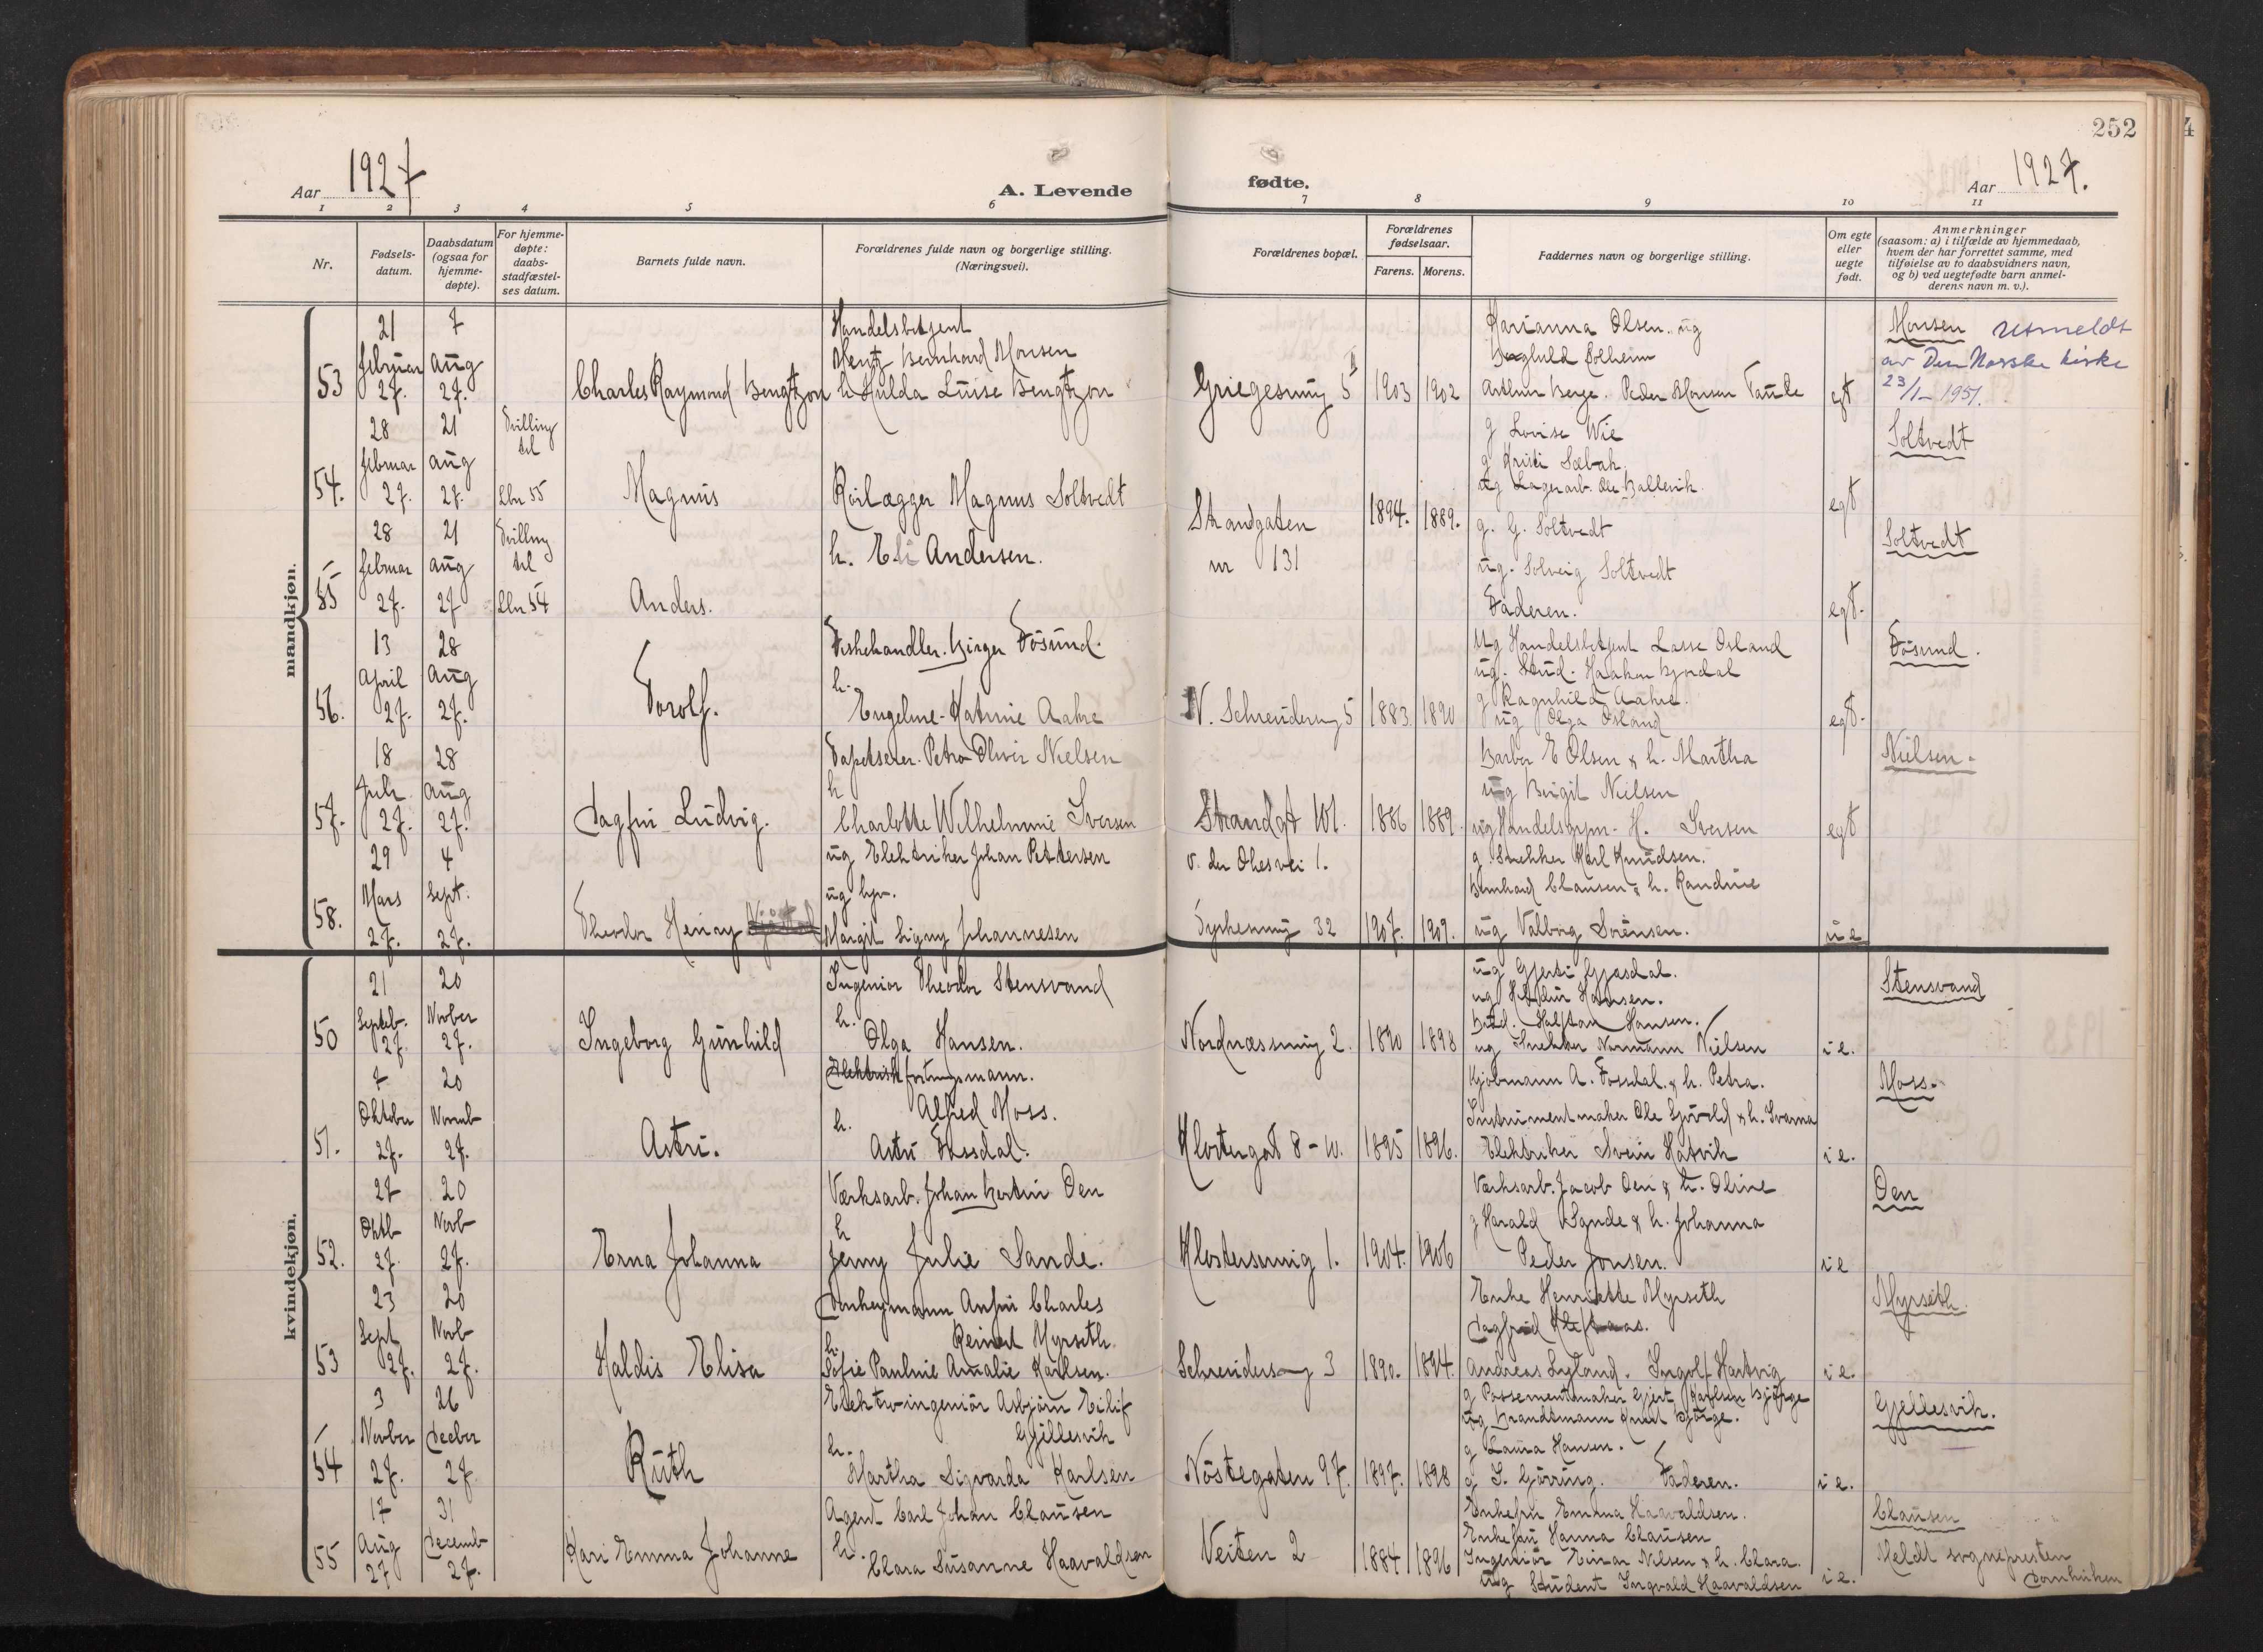 252
Aar 1927
A. Levende
fødte.
Aar 1927.
1 2 3 4 5 6 7 8 9 10 11
Nr.
Fødsels-
datum.
Daabsdatum
(ogsaa for
hjemme-
døpte).
For hjemme-
døpte:
daabs-
stadfæstel-
ses datum.
Barnets fulde navn.
Forældrenes fulde navn og borgerlige stilling.
(Næringsvei).
Forældrenes bopæl.
Forældrenes
fødselsaar.
Farens. Morens.
Faddernes navn og borgerlige stilling.
Om egte
eller
uegte
født.
Anmerkninger
(saasom: a) i tilfælde av hjemmedaab,
hvem der har forrettet samme, med
tilføielse av to daabsvidners navn,
og b) ved uegtefødte barn anmel-
derens navn m. v.).
mandkjøn.
53
21 februar 27.
7 aug 27.
Charles Raymond Bengtzon
Handelsbetjent
Mentz Bernhard Monsen
h. Hulda Luise Bengtzon
Griegesmug 5
1903 1902
Karianna Olsen. ug
Solheim
Arthur Berge. Peder Monsen Taule
egt
Monsen Utmeldt
av Den Norske kirke
23/1-1951.
54.
28 februar 27.
21 aug 27.
Tvilling
til
Lbn 55
Magnus
Rørlægger Magnus Soltvedt
h. Eli Andersen.
Strandgaten
nr 131
1894. 1889.
g Lovise Wie
g Kristi Sælbak.
ug Lagerarb. Ole Ballevik
egt
Soltvedt
55
28 februar 27.
21 aug 27
Tvilling
til
Lbn 54
Anders.
g. G. Soltvedt
ug. Solveig Soltvedt
Faderen.
egt.
Soltvedt
56.
13 April 27.
28 Aug 27.
Torolf.
Fiskehandler. Birger Tøsund.
h.
Engeline Katrine Aakre
N. Schreudersmug 5
1883. 1890
ug Handelsbetjent Lasse Osland
ug. Stud. Haakon Bjordal
g Ragnhild Aakre.
ug Olga Osland
egt.
Tøsund.
57.
18 Juli 27.
28 aug 27.
Dagfin Ludvig.
Tapetserer. Petro Oliver Nielsen
h
Charlotte Wilhelmine Iversen
Strandgt 101.
1886 1889.
Barber E Olsen & h. Martha
ug Birgit Nielsen
ug Handelsgym. H. Iversen
egt
Nielsen.
58.
29 Mars 27.
4 Sept. 27.
Theodor Henry
ug Elektriker Johan Pettersen
ug hpr.
Margit Signy Johannesen
v. der Ohesvei 1.
Dyrkesmug 32
1907. 1909.
g. Snekker Karl Knudsen.
Bernhard Clausen & h. Randine
ug Valborg Sørensen.
u e
kvindekjøn.
50
21 Septeb. 27.
20 Novber 27.
Ingeborg Gunhild
Ingeniør Theodor Stensvand
h.
Olga Hansen.
Nordnæssmug 2.
1890 1898
ug Gjerti Gjasdal.
ug Hansen.
Halfdan Hansen.
ug Snekker Normann Nielsen
i e.
Stensvand
51.
7 Oktober 27.
20 Novemb 27.
Astri.
Elektrisk mann.
Alfred Moss.
h.
Astri Fossdal.
Klostergat 8-10.
1895 1896.
Kjøbmann A. Fossdal. & h. Petra.
Instrumentmaker Ole & h. Svanna
Elektriker Svein Hatvik
i e.
Moss.
52.
27 Oktb 27.
20 Novb 27.
Erna Johanna
Værksarb. Johan Bertin Øen
h
Jenny Julie Sande.
Klostersmug 1.
1904. 1906
Værksarb. Jacob Øen & h. Oline
g Harald Sande & h. Johanna
Peder Jonsen.
i e
Øen
53
23 Sept 27.
20 Novb 27.
Haldis Elisa
Donkeymann Anfin Charles
h. Reinert Myrseth.
Sofie Pauline Amalie Karlsen.
Schreudersmug 3
1890. 1894.
Enke Henriette Myrseth
Dagfrid Kleftaas.
Andreas Lyland. Ingolf Hartvig
i e.
Myrseth.
54
3 Novber 27.
26 Decber 27.
Ruth
Elektro-ingeniør Asbjørn Eilif
h. Gjellesvik
Martha Sigvarda Karlsen
Nøstegaten 97.
1897. 1898
g Possementmaker Gjert Karlsen Bjørge
ug Brandtmann Knut Bjørge.
g Laura Hansen.
g S. Gørring. Faderen.
i e.
Gjellesvik.
55
17 Aug 27
31 Decemb 27.
Kari Emma Johanne
Agent Carl Johan Clausen
h.
Clara Susanne Haavaldsen
Veiten 2
1884 1896
Enkefru Emma Haavaldsen.
Enkefru Hanna Clausen
Ingeniør Einar Nilsen & h. Clara.
ug Student Ingvald Haavaldsen
i e.
Clausen
Meldt sognepresten
Domkirken